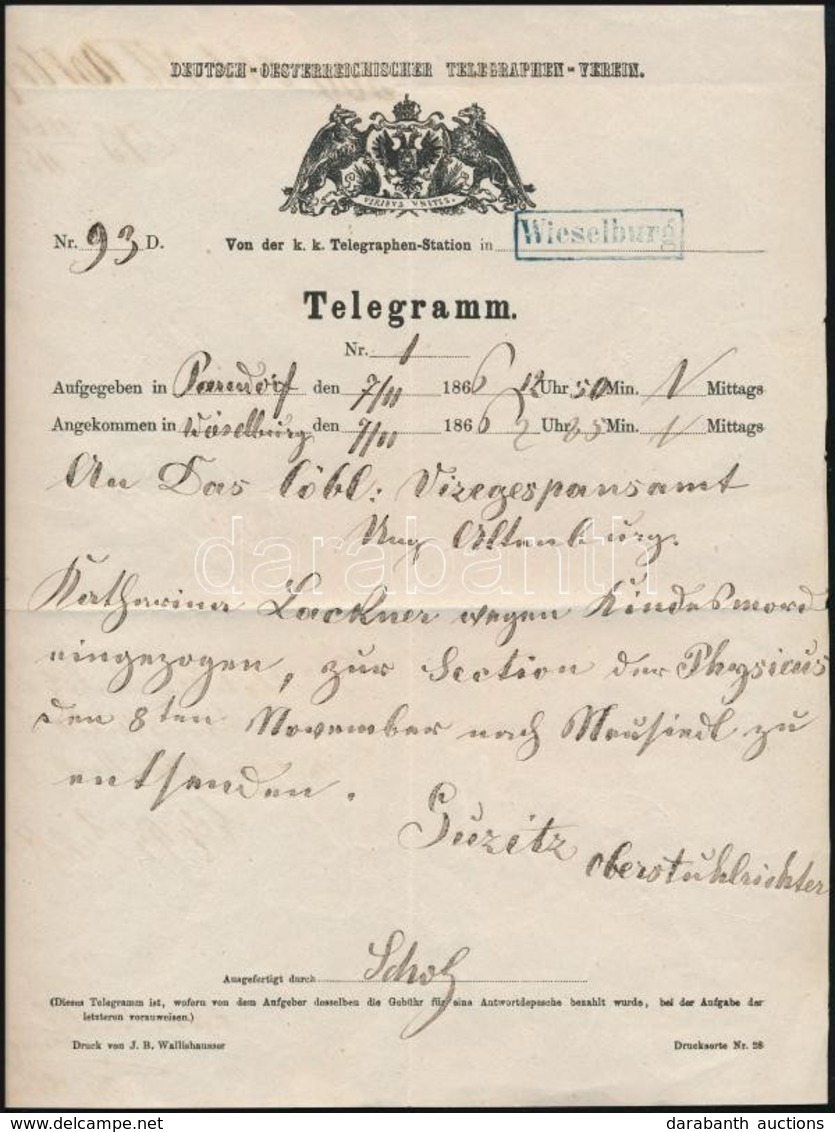 DEUTSCH-OESTERREICHISCHER TELEGRAPHEN-VEREIN.
VIRIBVS VNITIS.
Nr. 93 D. Von der k. k. Telegraphen-Station in Wieselburg
Telegramm.
Nr. 1
Aufgegeben in Parndorf den 7/11 1866 12 Uhr 50 Min. Mittags
Angekommen in Wieselburg den 7/11 1866 2 Uhr Min. Mittags
An Das löbl: Vizegespansamt
Ung Altenburg.
Katharina Lackner wegen Kindesmord
eingezogen, zur Section der Physicus
den 8ten November nach Neusiedl zu
entsenden.
Oberstuhlrichter
Ausgefertigt durch Scholz
(Dieses Telegramm ist, wofern von dem Aufgeber desselben die Gebühr für eine Antwortdepesche bezahlt wurde, bei der Aufgabe der
letzteren vorzuweisen.)
Druck von J. B. Wallishausser Drucksorte Nr. 28
darabanth
darabanth auctions